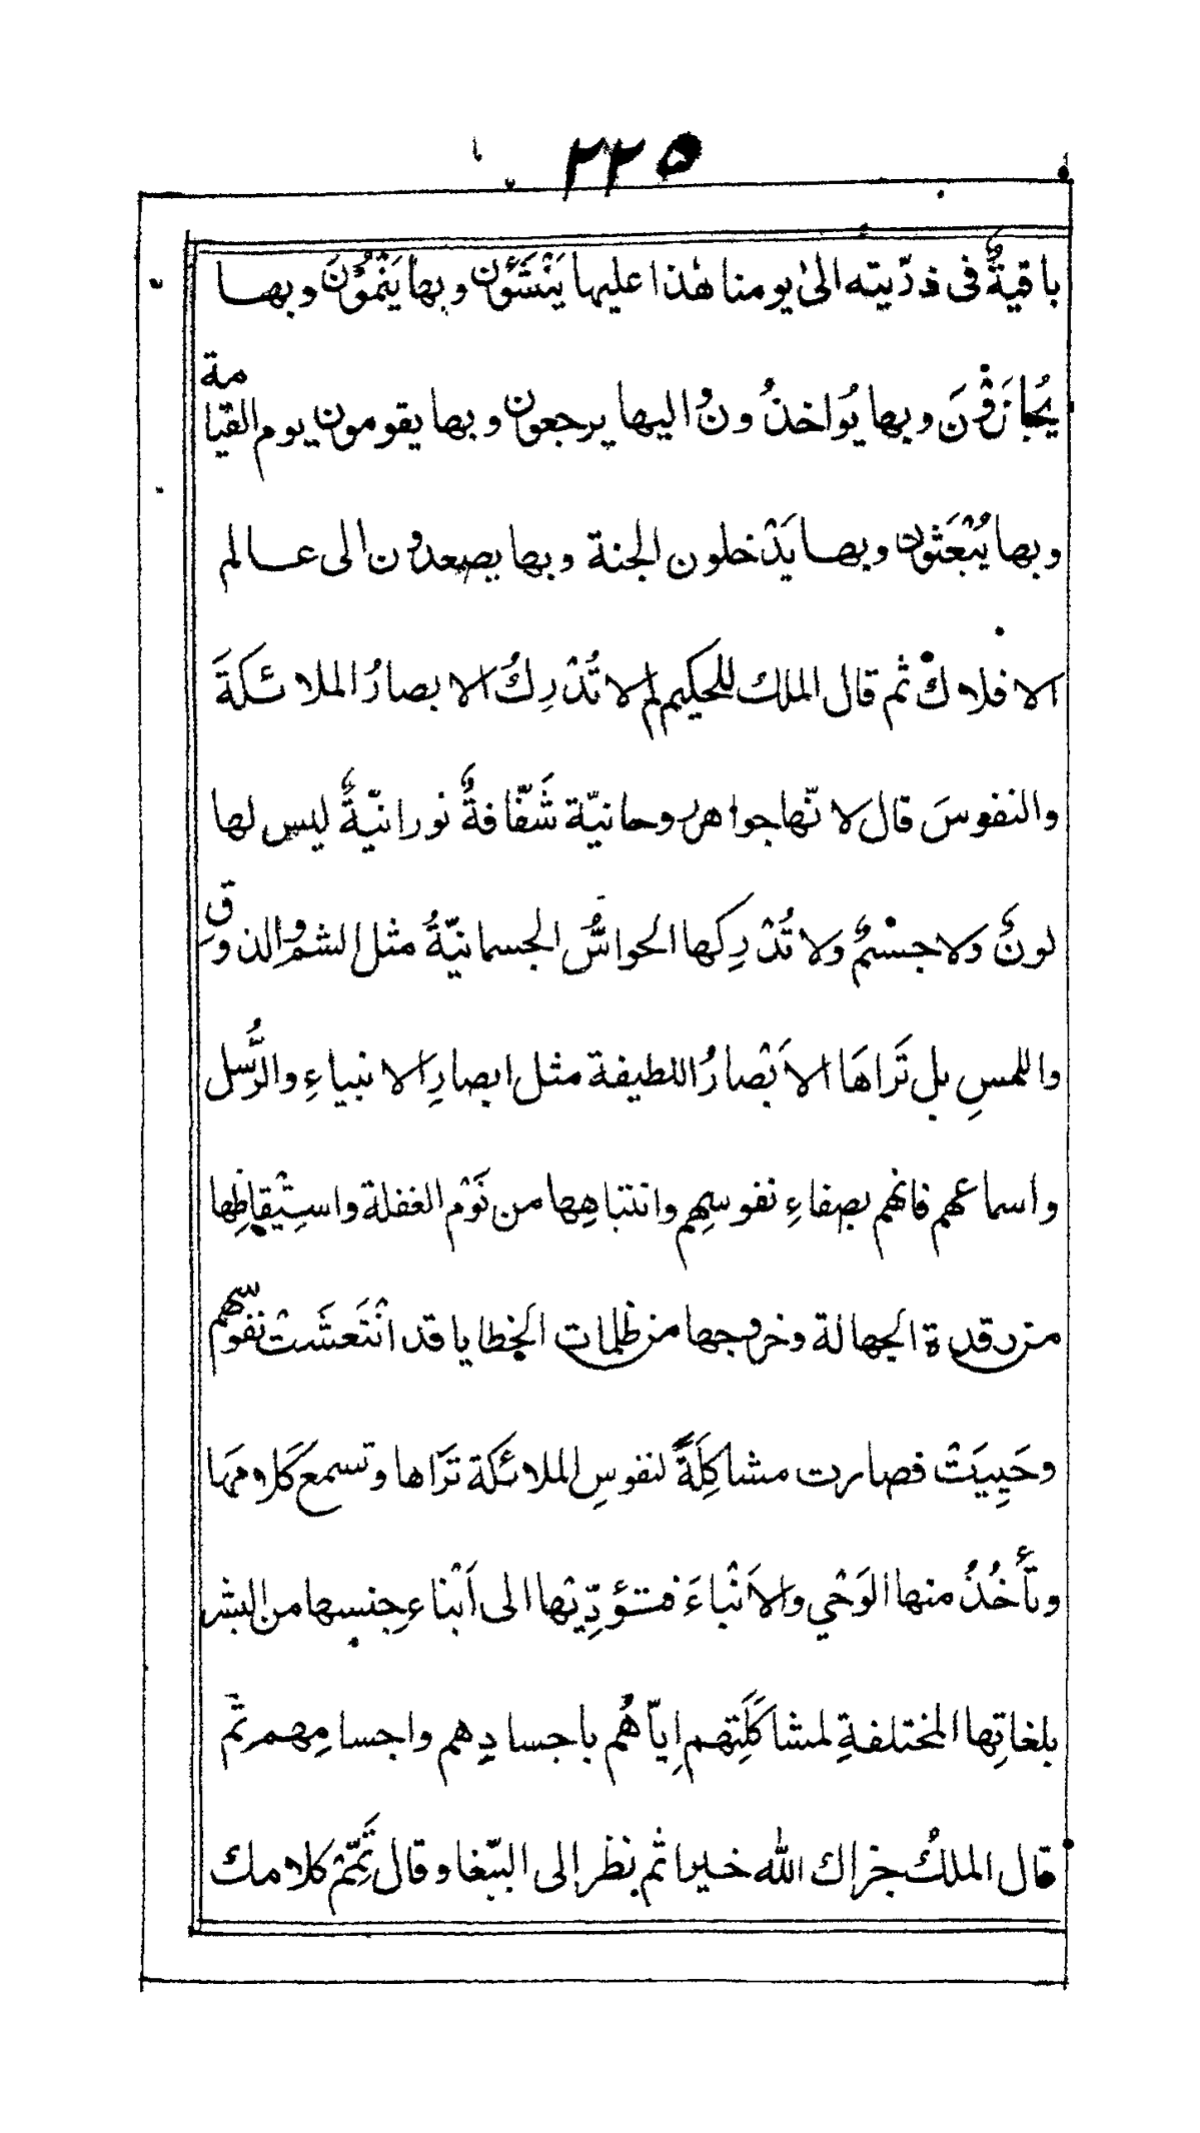 ٢٢٥
باقيةٌ فى ذرّيته الىٰ يومنا هٰذا عليها يَنْشَئُون وبها يَنْمُوْنَ وبها
يُجازَوْنَ وبها يُواخذُونُ اليها يرجعون وبها يقومون يوم القيامة
وبها يُبْعَثون وبها يَدْخلون الجنة وبها يصعدون الى عالم
الافلاكْ ثم قال الملك للحكيم لِم لا تُدْرِكُ الابصارُ الملائكةَ
والنفوسَ قال لانّها جواهر روحانيّة شَفّافةٌ نورانيّةٌ ليس لها
لونٌ ولا جسْمٌ ولا تُدْرِكها الحواسُّ الجسمانيّةُ مثل الشم والذوقِ
واللمسِ بل تَرَاهَا الاَبْصارُ اللطيفة مثل ابصارِ الانبياءِ والرُّسل
واسماعهم فانهم بصفاءِ نفوسِهم وانتباهِها من نَوْم الغفلة واستِيْقاظِها
من رقدة الجهالة وخروجها من ظلمات الخطايا قد انْتَعشَتْ نفوسهم
وحَيِيَتْ فصارت مشاكِلَةً لنفوسِ الملائكة تَرَاها وتسمع كَلامَهَا
وتأخُذُ منها الوَحْي والاَنْباءَ فتؤدِّيْها الى اَبْناءِ جنسِها من البشر
بلغاتِها المختلفةِ لمشاكَلَتِهم اِيّاهُم باجسادِهم واجسامِهم ثم
قال الملكُ جزاك الله خيرا ثم نظر الى الببّغا وقال تَمِّمْ كلامك